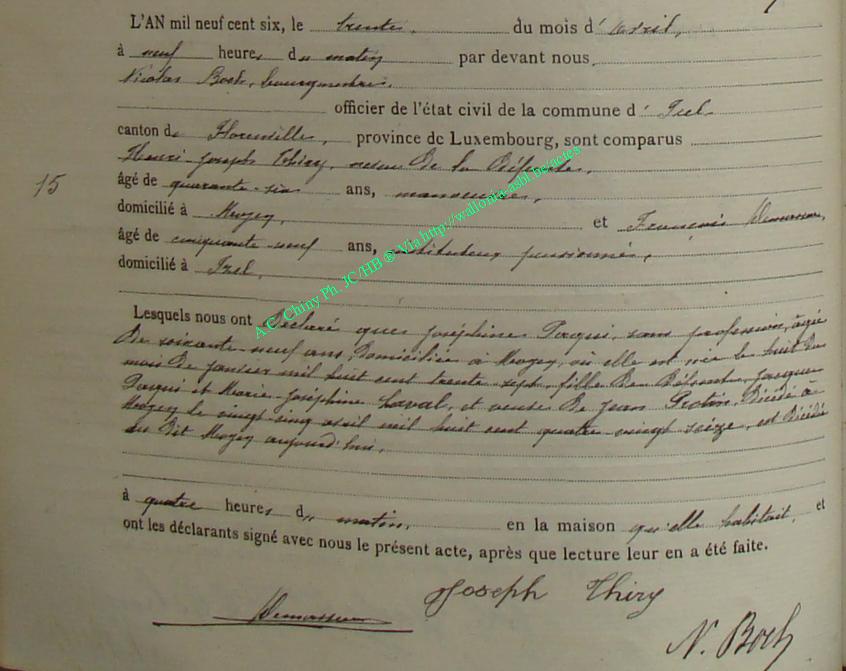 L'AN mil neuf cent six, le trente, du mois d'avril,
à neuf heures du matin par devant nous
Nicolas Boch, bourgmestre,
officier de l'état civil de la commune d'Izel
canton de Florenville, province de Luxembourg, sont comparus
Henri-Joseph Thiry, neveu de la Défunte,
15
âgé de quarante-six ans, manoeuvre,
domicilié à Moyen, et François
âgé de cinquante-neuf ans, instituteur pensionné,
domicilié à Izel,
A.C. Chiny Ph. JC/HB ® Via http://wallonia-asbl.be/actes
Lesquels nous ont déclaré que Joséphine Perqui, sans profession, âgée
de soixante-neuf ans, domiciliée à Moyen, où elle est née le huit du
mois de janvier mil huit cent trente sept, fille de Jacques
Perqui et Marie-Joséphine Laval, et veuve de Jean décédé à
Moyen le vingt-cinq avril mil huit cent quatre vingt seize, est décédée
au dit Moyen aujourd'hui,
à quatre heures du matin, en la maison qu'elle habitait, et
ont les déclarants signé avec nous le présent acte, après que lecture leur en a été faite.
Joseph Thiry
N. Boch